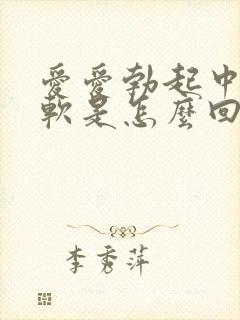 愛愛勃起中
軟是怎麼回
李秀萍